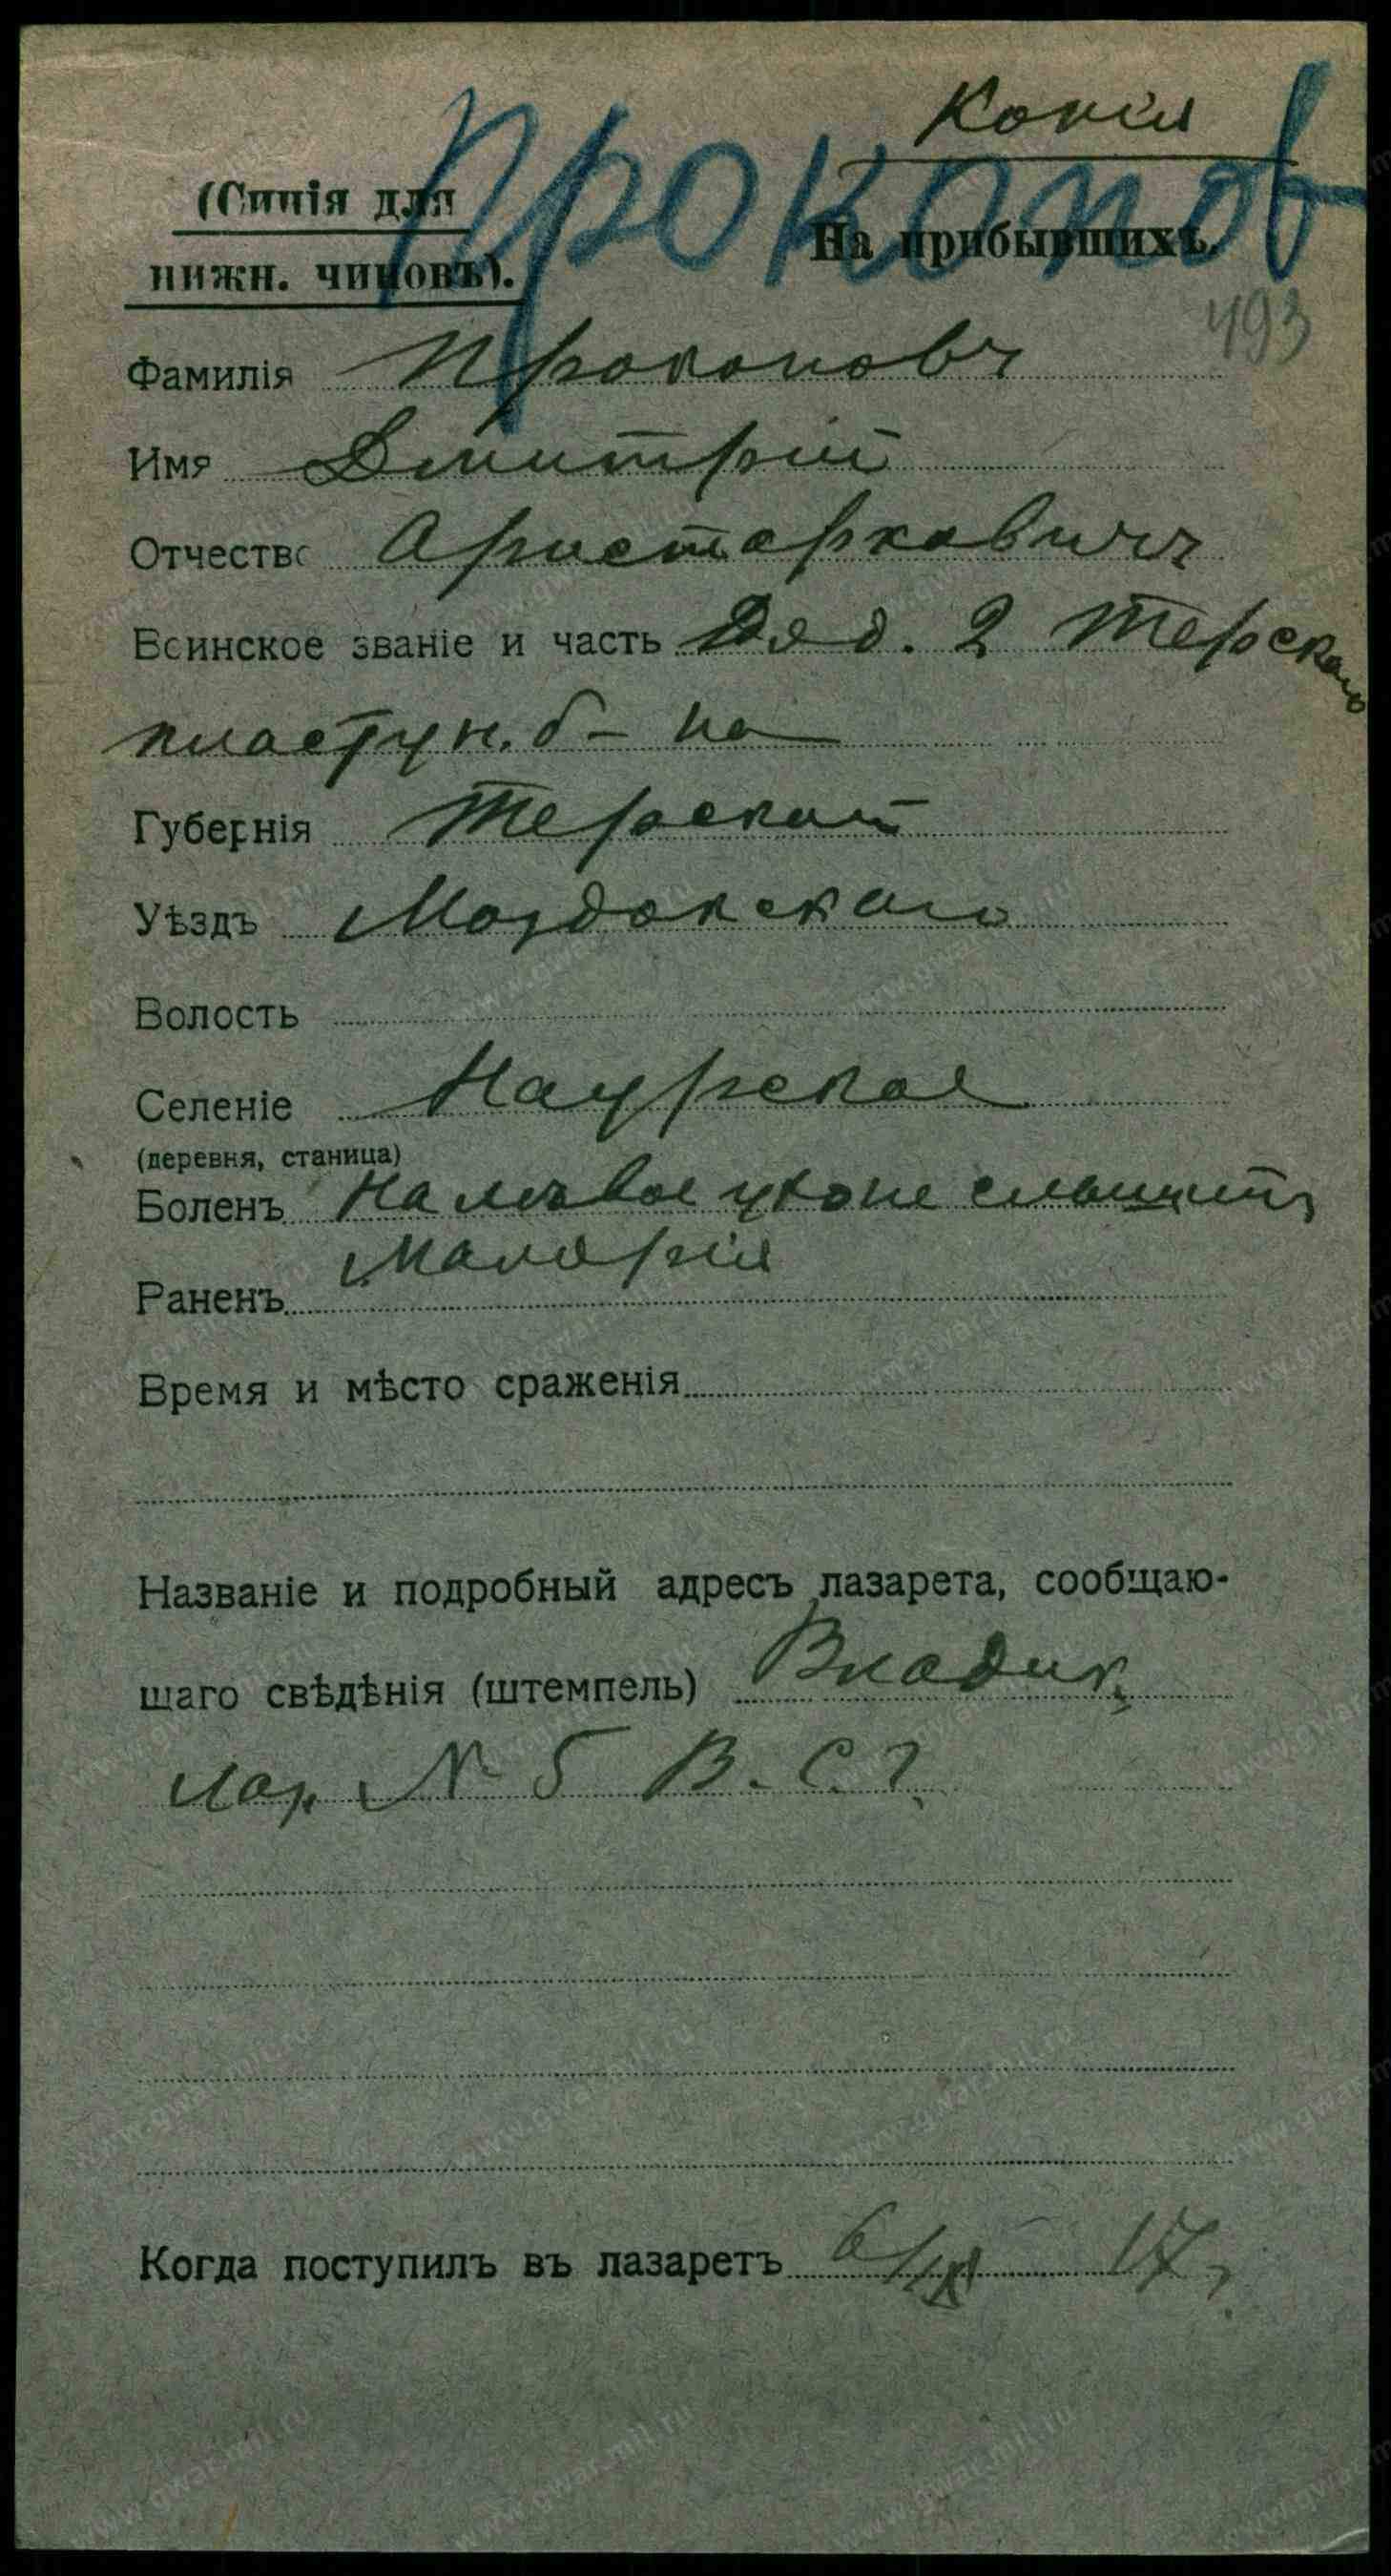 Копія
Прокопов
(Синія для
На прибывшихъ.
нижн. чиновъ).
493
Фамилія Прокоповъ
Имя Дмитрій
Отчество Аристарховичъ
Воинское званіе и часть Ряд. 2 Терскаго
пластун. б-на
Губернія Терской
Уѣздъ Моздокскаго
Волость
Селеніе Наурская
(деревня, станица)
Боленъ На лѣвое ухо не слышитъ
Малярія
Раненъ
Время и мѣсто сраженія
Названіе и подробный адресъ лазарета, сообщаю-
щаго свѣдѣнія (штемпель) Владик.
Лаз. № 5 В. С. Г.
Когда поступилъ въ лазаретъ 17 г.